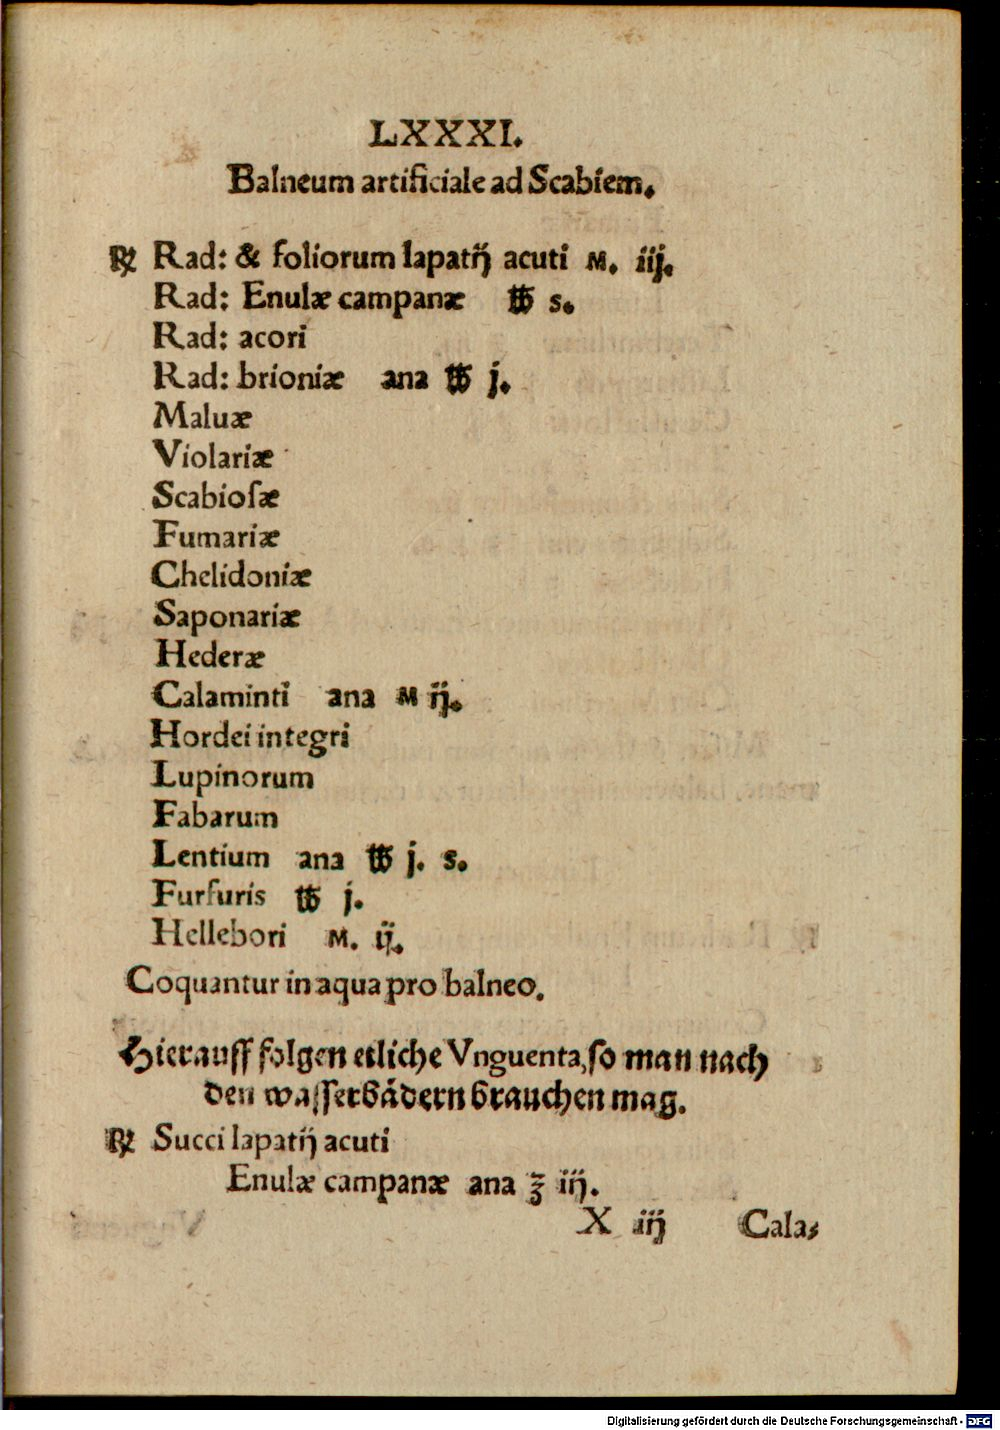 LXXXI.
Balneum artificiale ad Scabiem.
℞ Rad: & foliorum lapatij acuti M. iij.
Rad: Enulæ campanæ ℔ s.
Rad: acori
Rad: brioniæ ana ℔ j.
Maluæ
Violariæ
Scabioſæ
Fumariæ
Chelidoniæ
Saponariæ
Hederæ
Calaminti ana M ij.
Hordei integri
Lupinorum
Fabarum
Lentium ana ℔ j. s.
Furfuris ℔ j.
Hellebori M. ij.
Coquantur in aqua pro balneo.
Hierauff folgen etliche Vnguenta, ſo man nach
den waſſerbådern brauchen mag.
℞ Succi lapatij acuti
Enulæ campanæ ana ℥ iij.
X iij Cala⸗
Digitalisierung gefördert durch die Deutsche Forschungsgemeinschaft - DFG